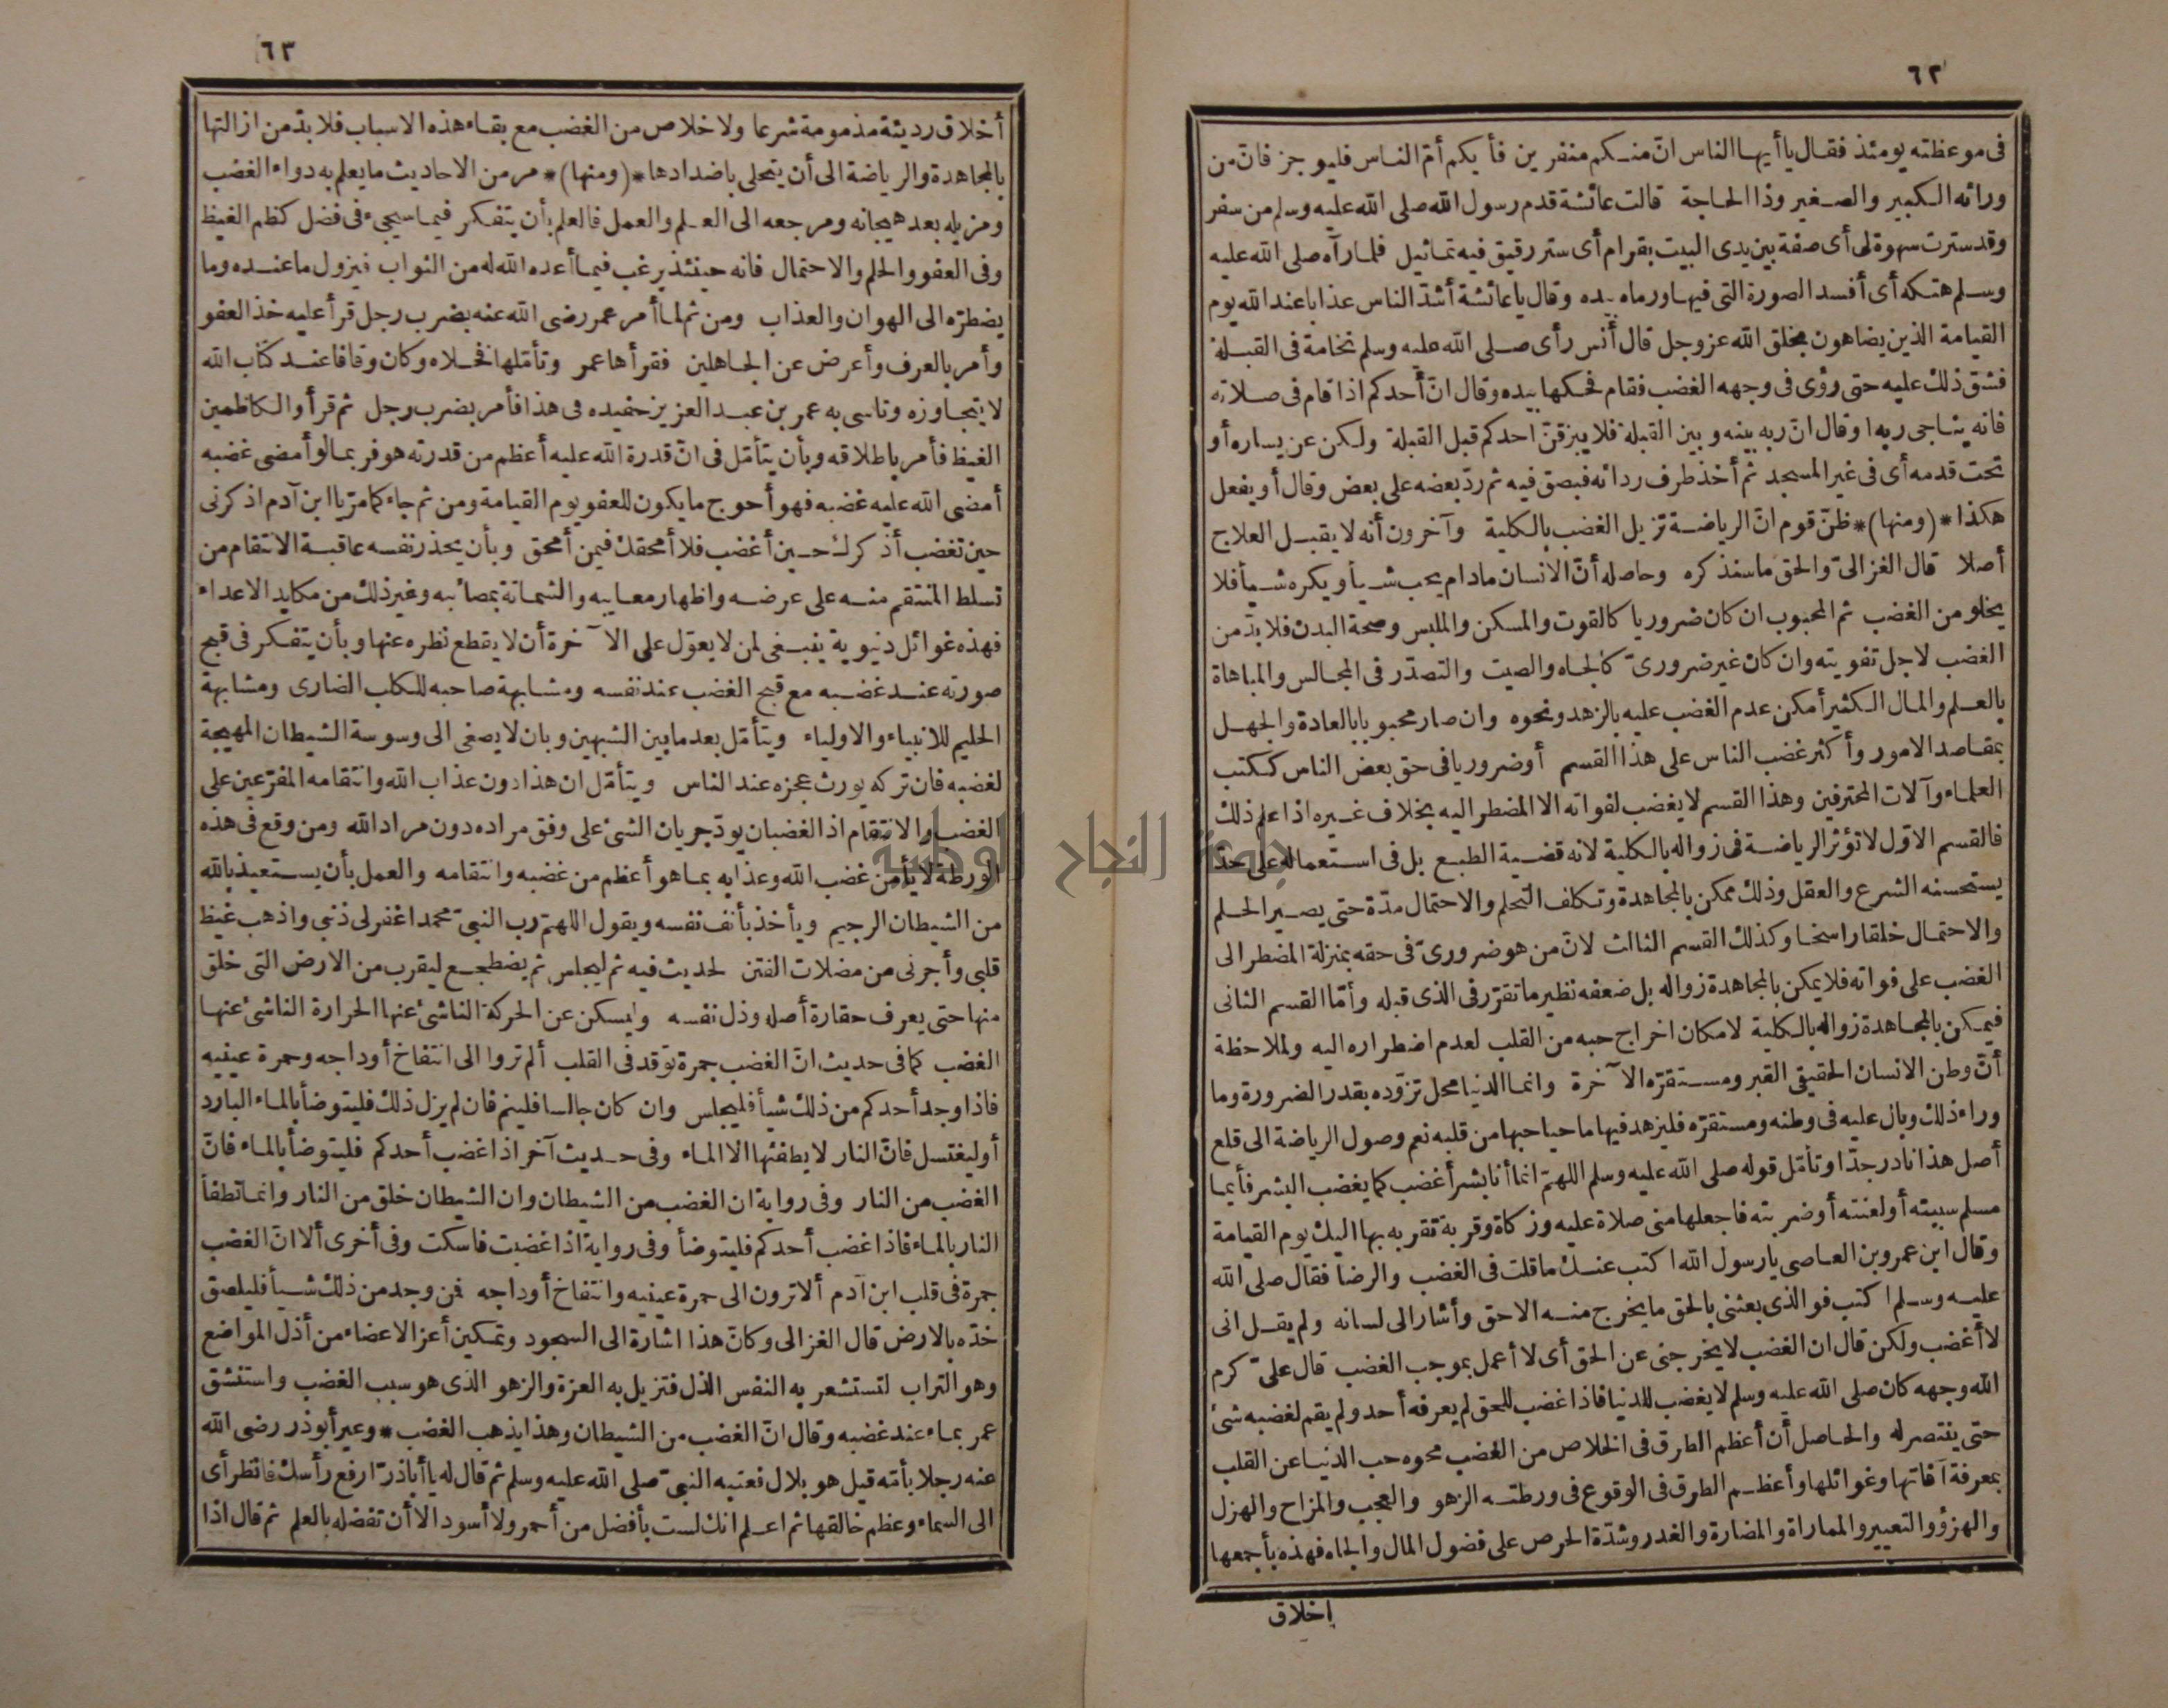 ٦٢
فى موعظته يومئذ فقال يا أيها الناس انّ منكم منفرين فأيكم أمّ الناس فليوجز فانّ من
ورائه الكبير والصغير وذا الحاجة قالت عائشة قدم رسول الله صلى الله عليه وسلم من سفر
وقد سترت سهوة لى أى صفة بين يدى البيت بقرام أى ستر رقيق فيه تماثيل فلما رآه صلى الله عليه
وسلم هتكه أى أفسد الصورة التى فيها ورماه بيده وقال يا عائشة أشدّ الناس عذابا عند الله يوم
القيامة الذين يضاهون بخلق الله عز وجل قال أنس رأى صلى الله عليه وسلم نخامة فى القبلة
فشق ذلك عليه حتى رؤى فى وجهه الغضب فقام فحكها بيده وقال انّ أحدكم اذا قام فى صلاته
فانه يناجى ربه اوقال انّ ربه بينه وبين القبلة فلا يبزقنّ احدكم قبل القبلة ولكن عن يساره أو
تحت قدمه أى فى غير المسجد ثم أخذ طرف ردائه فبصق فيه ثم ردّ بعضه على بعض وقال أو يفعل
هكذا *(ومنها)* ظنّ قوم انّ الرياضة تزيل الغضب بالكلية وآخرون أنه لا يقبل العلاج
أصلا قال الغزالىّ والحق ما سنذكره وحاصله أنّ الانسان مادام يحب شيأ ويكره شيأ فلا
يخلو من الغضب ثم المحبوب ان كان ضروريا كالقوت والمسكن والملبس وصحة البدن فلا بدّ من
الغضب لاجل تفويته وان كان غير ضرورىّ كالجاه والصيت والتصدّر فى المجالس والمباهاة
بالعلم والمال الكثير أمكن عدم الغضب عليه بالزهد ونحوه وان صار محبوبا بالعادة والجهل
بمقاصد الامور وأكثر غضب الناس على هذا القسم أو ضروريا فى حق بعض الناس ككتب
العلماء وآلات المحترفين وهذا القسم لا يغضب لفواته الا المضطر اليه بخلاف غيره اذا علم ذلك
فالقسم الاوّل لا تؤثر الرياضة فى زواله بالكلية لانه قضية الطبع بل فى استعماله على حدّ
يستحسنه الشرع والعقل وذلك ممكن بالمجاهدة وتكلف التحلم والاحتمال مدّة حتى يصير الحلم
والاحتمال خلقا راسخا وكذلك القسم الثالث لانّ من هو ضرورىّ فى حقه بمنزلة المضطر الى
الغضب على فواته فلا يمكن بالمجاهدة زواله بل ضعفه نظير ما تقرّر فى الذى قبله وأمّا القسم الثانى
فيمكن بالمجاهدة زواله بالكلية لامكان اخراج حبه من القلب لعدم اضطراره اليه ولملاحظة
أنّ وطن الانسان الحقيقى القبر ومستقرّه الآخرة وانما الدنيا محل تزوّده بقدر الضرورة وما
وراء ذلك وبال عليه فى وطنه ومستقرّه فليزهد فيها ما حيا حبها من قلبه نعم وصول الرياضة الى قلع
أصل هذا نادر جدّا وتأمّل قوله صلى الله عليه وسلم اللهمّ انما أنا بشر أغضب كما يغضب البشر فأيما
مسلم سببته أو لعنته أو ضربته فاجعلها منى صلاة عليه وزكاة وقربة تقربه بها اليك يوم القيامة
وقال ابن عمرو بن العاصى يا رسول الله اكتب عنك ما قلت فى الغضب والرضا فقال صلى الله
عليه وسلم اكتب فوالذى بعثنى بالحق ما يخرج منه الا حق وأشار الى لسانه ولم يقل انى
لا أغضب ولكن قال ان الغضب لا يخرجنى عن الحق أى لا أعمل بموجب الغضب قال علىّ كرم
الله وجهه كان صلى الله عليه وسلم لا يغضب للدنيا فاذا غضب للحق لم يعرفه أحد ولم يقم لغضبه شئ
حتى ينتصر له والحاصل أن أعظم الطرق فى الخلاص من الغضب محوه حب الدنيا عن القلب
بمعرفة آفاتها وغوائلها وأعظم الطرق فى الوقوع فى ورطته الزهو والعجب والمزاح والهزل
والهزؤ والتعيير والمماراة والمضارة والغدر وشدّة الحرص على فضول المال والجاه فهذه بأجمعها
اخلاق
٦٣
أخلاق رديئة مذمومة شرعا ولا خلاص من الغضب مع بقاء هذه الاسباب فلا بدّ من ازالتها
بالمجاهدة والرياضة الى أن يتحلى باضدادها *(ومنها)* مر من الاحاديث ما يعلم به دواء الغضب
ومزيله بعد هيجانه ومرجعه الى العلم والعمل فالعلم بأن يتفكر فيما سيجىء فى فضل كظم الغيظ
وفى العفو والحلم والاحتمال فانه حينئذ يرغب فيما أعده الله له من الثواب فيزول ما عنده وما
يضطرّه الى الهوان والعذاب ومن ثم لما أمر عمر رضى الله عنه بضرب رجل قرأ عليه خذ العفو
وأمر بالعرف وأعرض عن الجاهلين فقرأها عمر وتأمّلها فخلاه وكان وقافا عند كتاب الله
لا يتجاوزه وتاسى به عمر بن عبد العزيز حفيده فى هذا فأمر بضرب رجل ثم قرأ والكاظمين
الغيظ فأمر باطلاقه وبأن يتأمّل فى انّ قدرة الله عليه أعظم من قدرته هو فربما لو أمضى غضبه
أمضى الله عليه غضبه فهو أحوج ما يكون للعفو يوم القيامة ومن ثم جاء كما مرّ يا ابن آدم اذكرنى
حين تغضب أذكرك حين أغضب فلا أمحقك فيمن أمحق وبأن يحذر نفسه عاقبة الانتقام من
تسلط المنتقم منه على عرضه واظهار معايبه والشماتة بمصائبه وغير ذلك من مكايد الاعداء
فهذه غوائل دنيوية ينبغى لمن لا يعوّل على الآخرة أن لا يقطع نظره عنها وبأن يتفكر فى قبح
صورته عند غضبه مع قبح الغضب عند نفسه ومشابهة صاحبه للكلب الضارى ومشابهة
الحليم للانبياء والاولياء ويتأمّل بعد ما بين الشبهين وبان لا يصغى الى وسوسة الشيطان المهيجة
لغضبه فان تركه يورث عجزه عند الناس ويتأمّل ان هذا دون عذاب الله وانتقامه المفرّعين على
الغضب والانتقام اذ الغضبان يودّ جريان الشئ على وفق مراده دون مراد الله ومن وقع فى هذه
الورطة لا يأمن غضب الله وعذابه بما هو أعظم من غضبه وانتقامه والعمل بأن يستعيذ بالله
من الشيطان الرجيم ويأخذ بأنف نفسه ويقول اللهمّ رب النبىّ محمد اغفر لى ذنبى واذهب غيظ
قلبى وأجرنى من مضلات الفتن لحديث فيه ثم ليجلس ثم يضطجع ليقرب من الارض التى خلق
منها حتى يعرف حقارة أصله وذل نفسه وليسكن عن الحركة الناشئ عنها الحرارة الناشئ عنها
الغضب كما فى حديث انّ الغضب جمرة توقد فى القلب ألم تروا الى انتفاخ أوداجه وحمرة عينيه
فاذا وجد أحدكم من ذلك شيأ فليجلس وان كان جالسا فلينم فان لم يزل ذلك فليتوضأ بالماء البارد
أو ليغتسل فانّ النار لا يطفئها الا الماء وفى حديث آخر اذا غضب أحدكم فليتوضأ بالماء فانّ
الغضب من النار وفى رواية ان الغضب من الشيطان وان الشيطان خلق من النار وانما تطفأ
النار بالماء فاذا غضب أحدكم فليتوضأ وفى رواية اذا غضبت فاسكت وفى أخرى ألا انّ الغضب
جمرة فى قلب ابن آدم ألا ترون الى حمرة عينيه وانتفاخ أوداجه فمن وجد من ذلك شيأ فليلصق
خدّه بالارض قال الغزالى وكانّ هذا اشارة الى السجود وتمكين أعز الاعضاء من أذل المواضع
وهو التراب لتستشعر به النفس الذل فتزيل به العزة والزهو الذى هو سبب الغضب واستنشق
عمر بماء عند غضبه وقال انّ الغضب من الشيطان وهذا يذهب الغضب * وعير أبو ذر رضى الله
عنه رجلا بأمّه قيل هو بلال فعتبه النبىّ صلى الله عليه وسلم ثم قال له يا أبا ذرّ ارفع رأسك فانظر أى
الى السماء وعظم خالقها ثم اعلم انك لست بأفضل من أحمر ولا أسود الا أن تفضله بالعلم ثم قال اذا
جامعة النجاح الوطنية